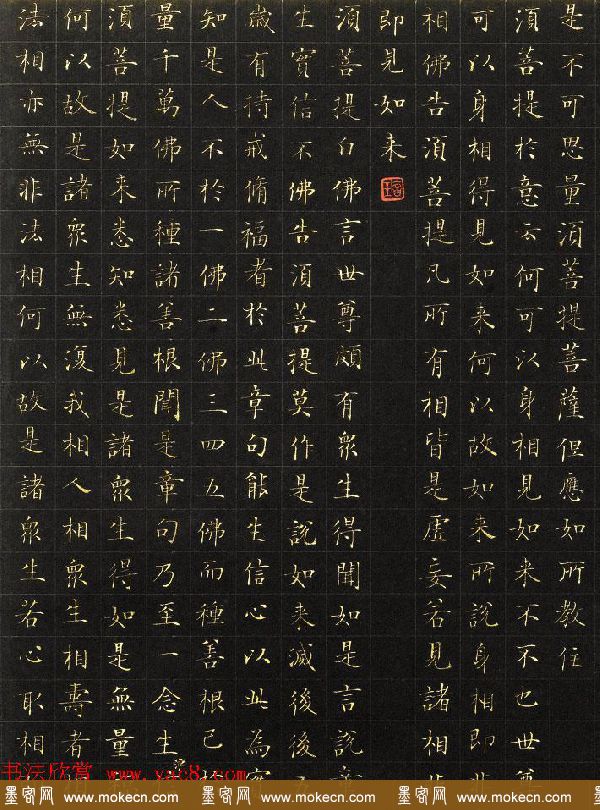 是不可思量須菩提菩薩但應如所教住
須菩提於意云何可以身相見如来不不也世尊
可以身相得見如来何以故如来所說身相即非
相佛告須菩提凡所有相皆是虛妄若見諸相非
即見如来
須菩提白佛言世尊頗有眾生得聞如是言說章
生實信不佛告須菩提莫作是說如来滅後後五
歲有持戒脩福者於此章句能生信心以此為實
知是人不於一佛二佛三四五佛而種善根已
量千萬佛所種諸善根聞是章句乃至一念生
須菩提如来悉知悉見是諸眾生得如是無量
何以故是諸眾生無復我相人相眾生相壽者
法相亦無非法相何以故是諸眾生若心取相
书法欣赏 www.yac8.com
墨密网 www.mokecn.com 墨密网 www.mokecn.com 墨密网 www.mokecn.com